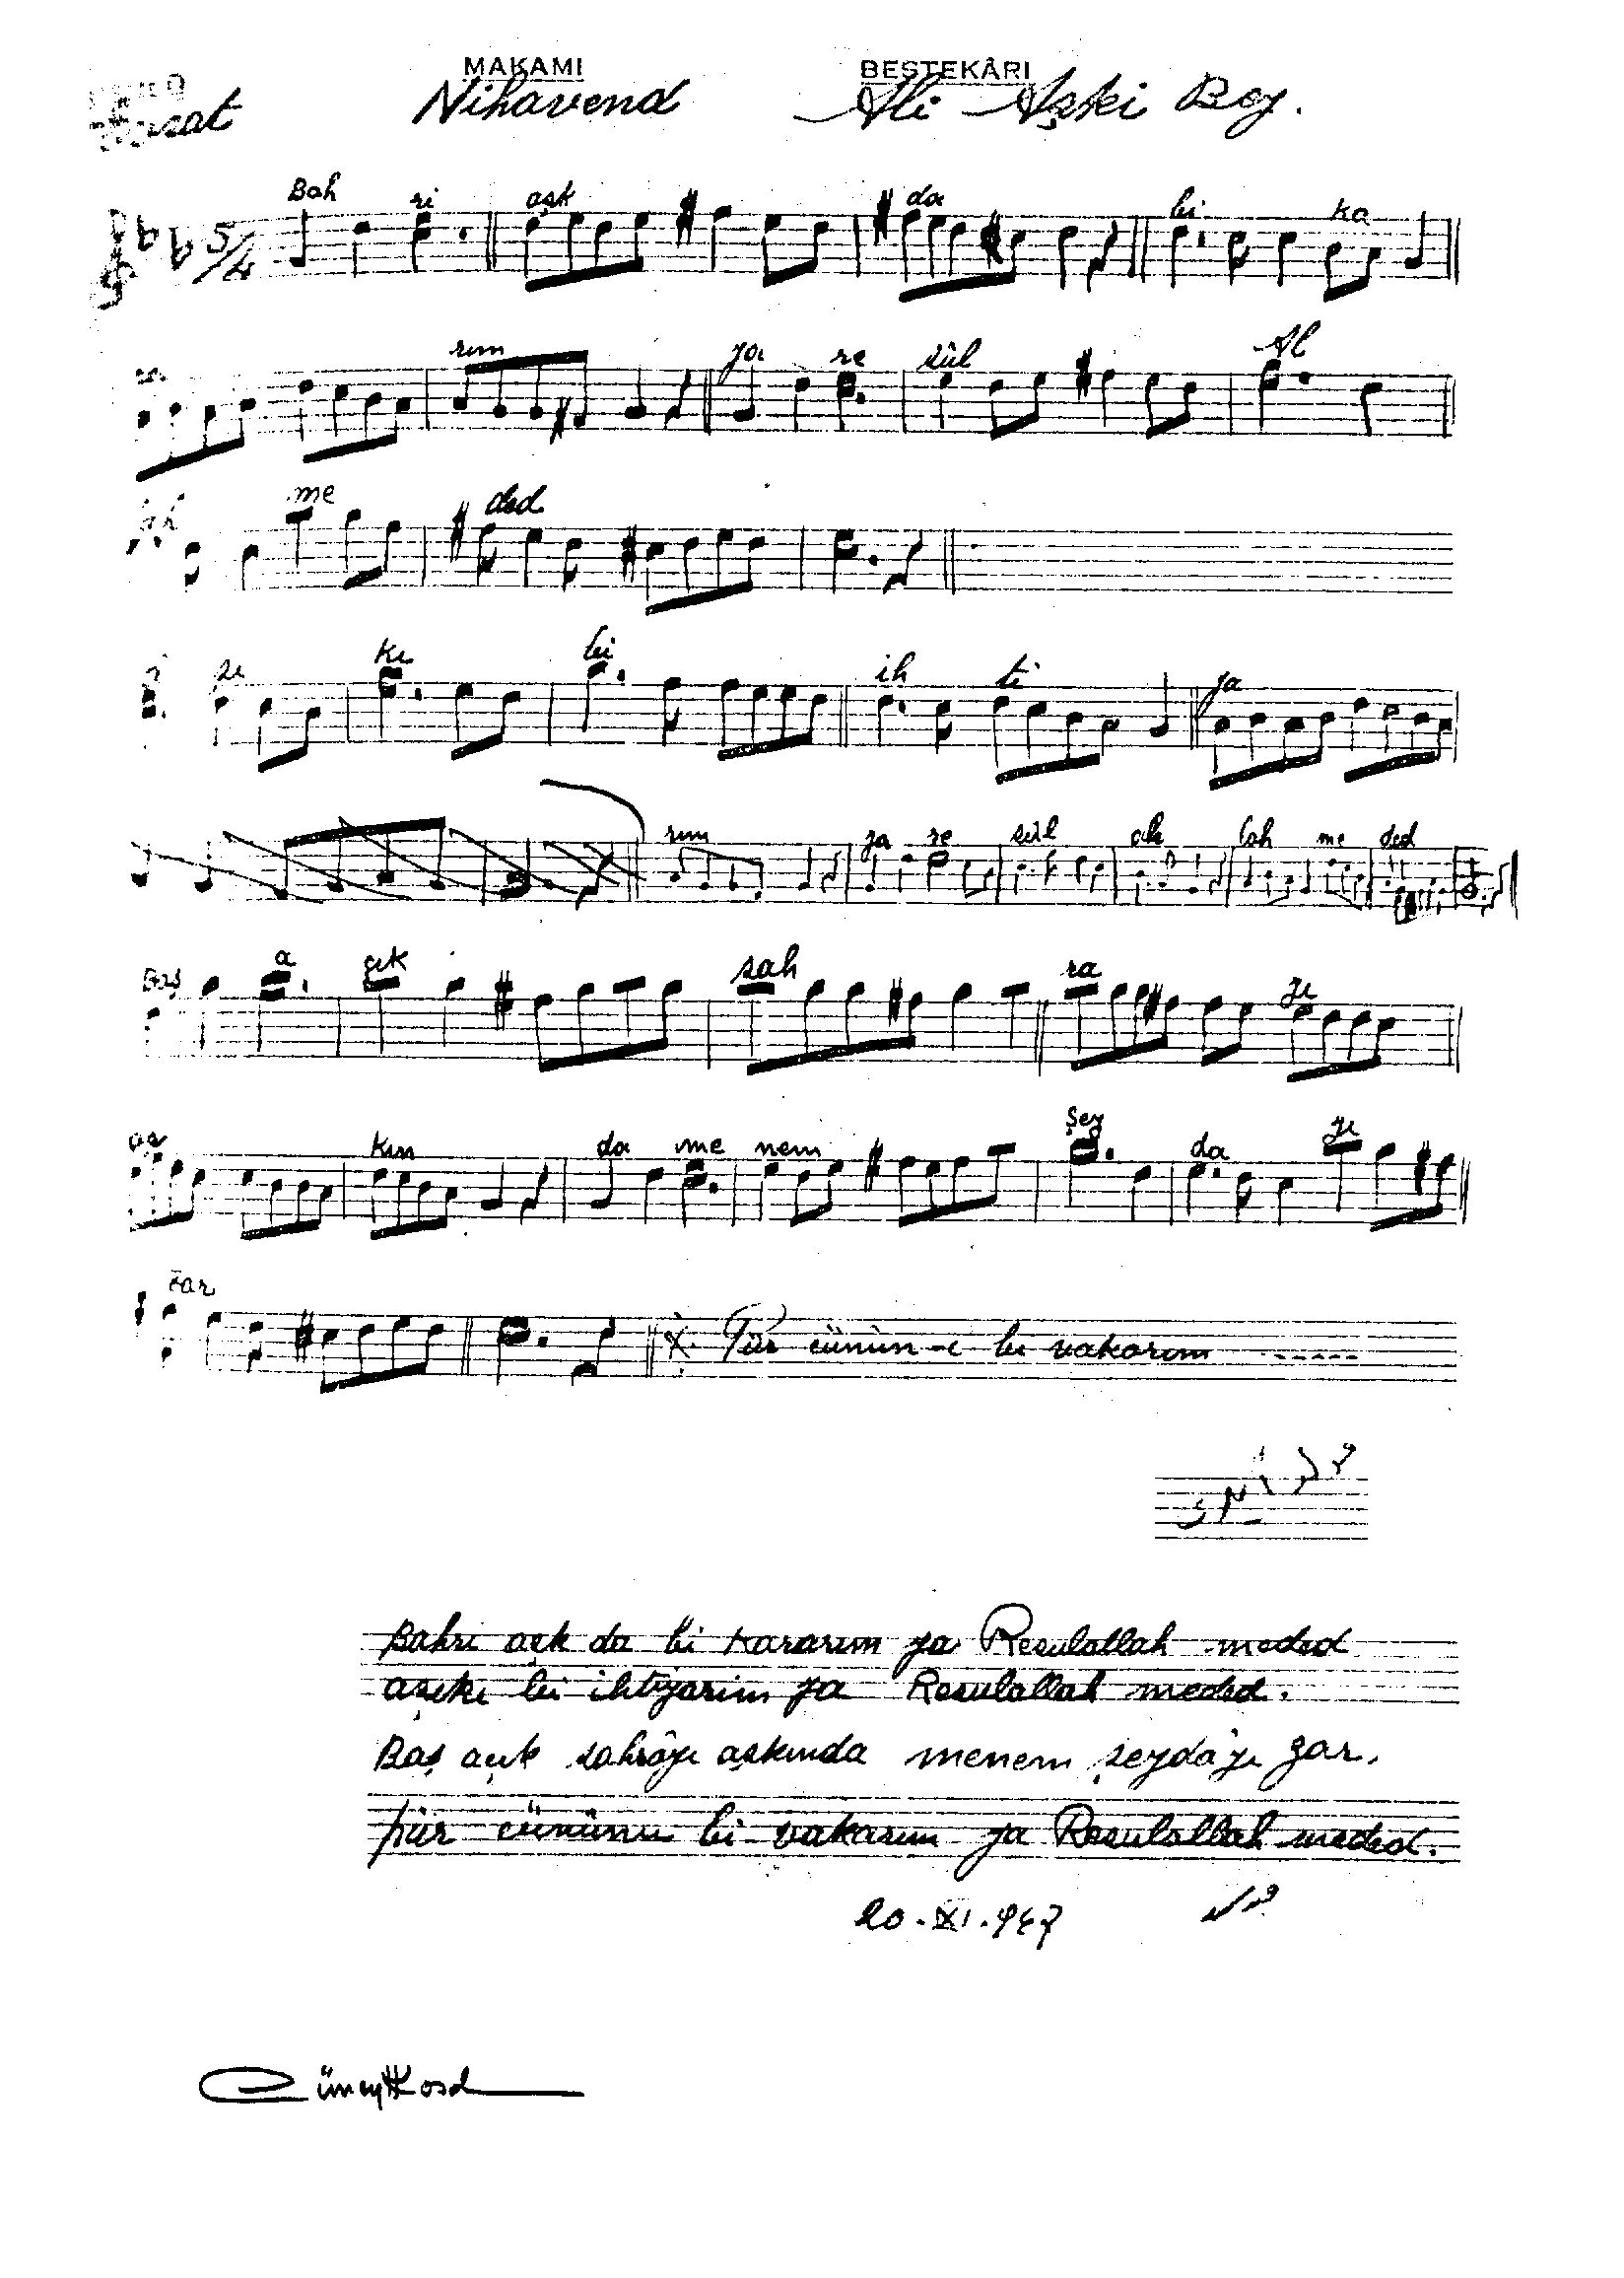 MAKAMI BESTEKÂRI
Nihavend Ali Aşki Bey.
5/4
Bah ri aşk da bi ka
ra rım ya re sûl Al
lah me ded
ze kı bi ih ti ya
rım ya re sûl al lah me ded
Baş a çık sah ra yı
aş kın da me nem Şey da yı
zar Pür cünûn-i bi vakarım ------
Bahri aşk da bi kararım ya Resulallah meded
aşıkı bi ihtiyarim ya Resulallah meded.
Baş açık sahrâyı aşkında menem şeydâyı zar.
pür cünûnu bi vakarım ya Resulallah meded.
20-XI-967